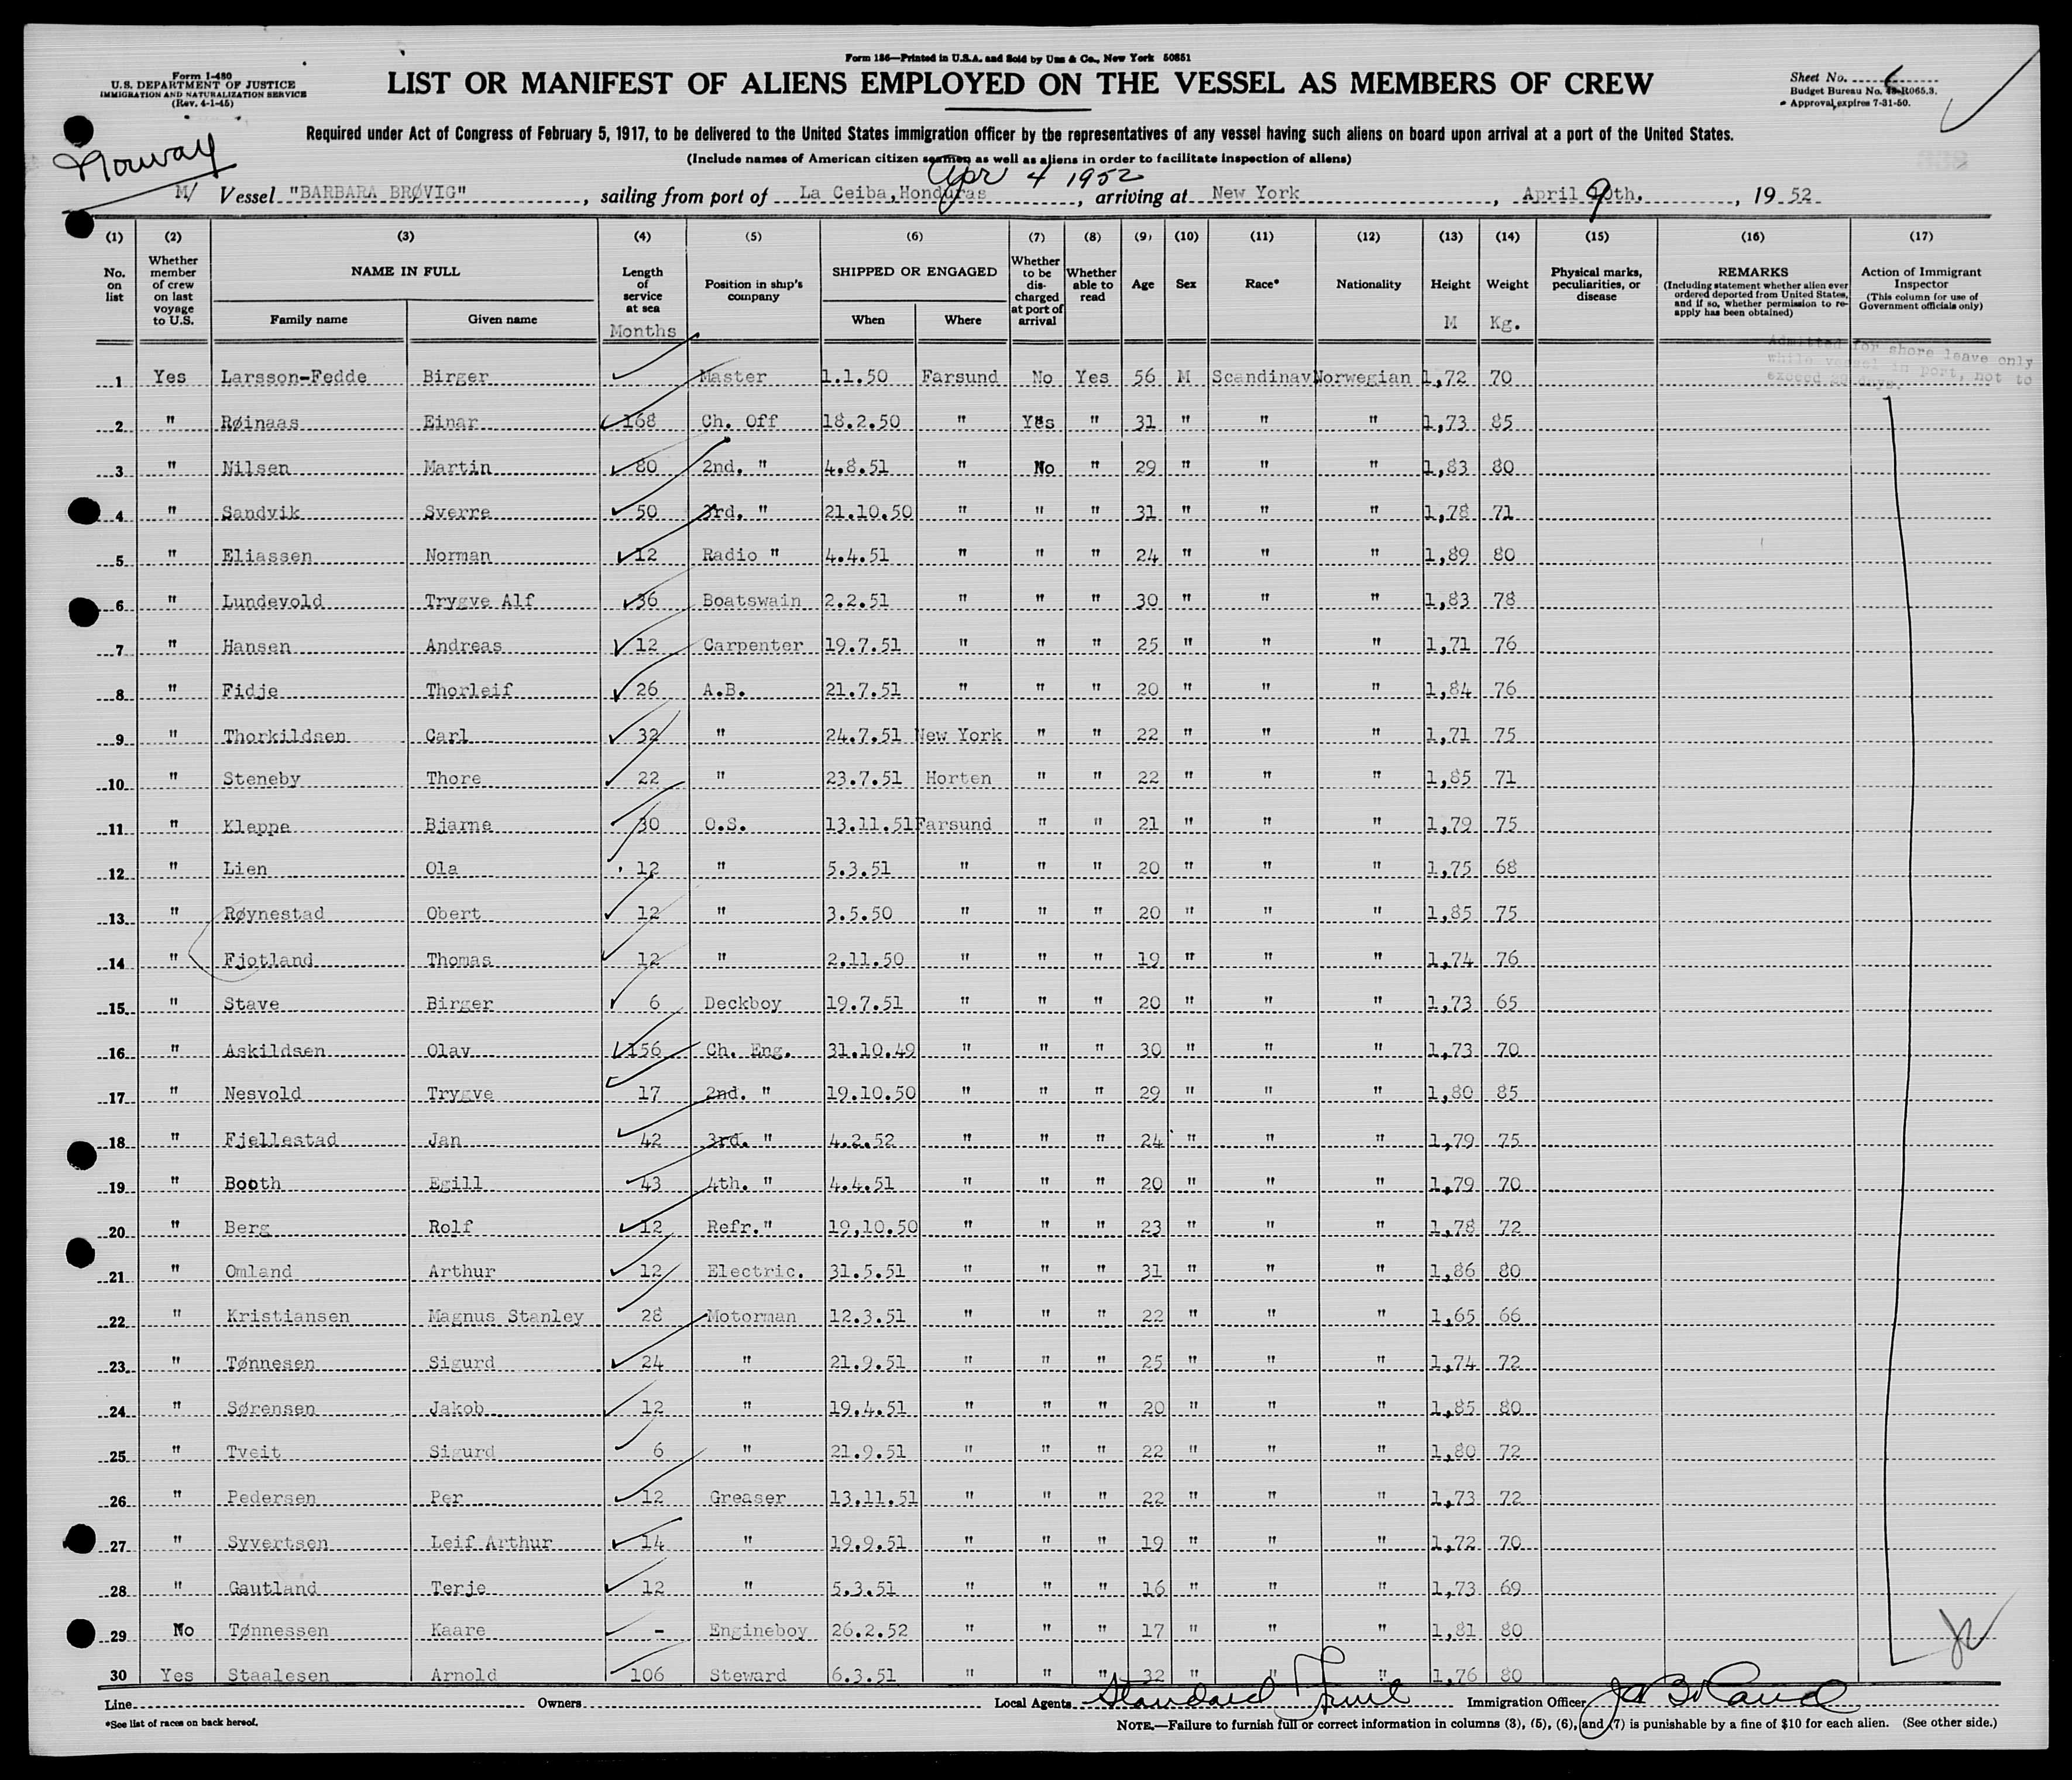 Form 186—Printed in U.S.A. and Sold by Unz & Co., New York 50851
Form I-480
U.S. DEPARTMENT OF JUSTICE
IMMIGRATION AND NATURALIZATION SERVICE
(Rev. 4-1-45)
LIST OR MANIFEST OF ALIENS EMPLOYED ON THE VESSEL AS MEMBERS OF CREW
Sheet No.
Budget Bureau No. 43-R065.3.
Approval expires 7-31-50.
Required under Act of Congress of February 5, 1917, to be delivered to the United States immigration officer by the representatives of any vessel having such aliens on board upon arrival at a port of the United States.
(Include names of American citizen seamen as well as aliens in order to facilitate inspection of aliens)
Norway
Apr 4 1952
M/ Vessel "BARBARA BRØVIG", sailing from port of La Ceiba, Honduras, arriving at New York, April 9th., 1952
(1) (2) (3) (4) (5) (6) (7) (8) (9) (10) (11) (12) (13) (14) (15) (16) (17)
No. on list
Whether member of crew on last voyage to U.S.
NAME IN FULL
Family name Given name
Length of service at sea Months
Position in ship's company
SHIPPED OR ENGAGED
When Where
Whether to be discharged at port of arrival
Whether able to read
Age Sex Race* Nationality
Height M
Weight Kg.
Physical marks, peculiarities, or disease
REMARKS
(Including statement whether alien ever ordered deported from United States, and if so, whether permission to reapply has been obtained)
Action of Immigrant Inspector
(This column for use of Government officials only)
Admitted for shore leave only
while vessel in port, not to
exceed 29 days.
1 Yes Larsson-Fedde Birger Master 1.1.50 Farsund No Yes 56 M Scandinav Norwegian 1,72 70
2 " Røinaas Einar 168 Ch. Off 18.2.50 " Yes " 31 " " " 1,73 85
3 " Nilsen Martin 80 2nd. " 4.8.51 " No " 29 " " " 1,83 80
4 " Sandvik Sverre 50 3rd. " 21.10.50 " " " 31 " " " 1,78 71
5 " Eliassen Norman 12 Radio " 4.4.51 " " " 24 " " " 1,89 80
6 " Lundevold Trygve Alf 36 Boatswain 2.2.51 " " " 30 " " " 1,83 78
7 " Hansen Andreas 12 Carpenter 19.7.51 " " " 25 " " " 1,71 76
8 " Fidje Thorleif 26 A.B. 21.7.51 " " " 20 " " " 1,84 76
9 " Thorkildsen Carl 32 " 24.7.51 New York " " 22 " " " 1,71 75
10 " Steneby Thore 22 " 23.7.51 Horten " " 22 " " " 1,85 71
11 " Kleppe Bjarne 30 O.S. 13.11.51 Farsund " " 21 " " " 1,79 75
12 " Lien Ola 12 " 5.3.51 " " " 20 " " " 1,75 68
13 " Røynestad Obert 12 " 3.5.50 " " " 20 " " " 1,85 75
14 " Fjotland Thomas 12 " 2.11.50 " " " 19 " " " 1,74 76
15 " Stave Birger 6 Deckboy 19.7.51 " " " 20 " " " 1,73 65
16 " Askildsen Olav 156 Ch. Eng. 31.10.49 " " " 30 " " " 1,73 70
17 " Nesvold Trygve 17 2nd. " 19.10.50 " " " 29 " " " 1,80 85
18 " Fjellestad Jan 42 3rd. " 4.2.52 " " " 24 " " " 1,79 75
19 " Booth Egill 43 4th. " 4.4.51 " " " 20 " " " 1,79 70
20 " Berg Rolf 12 Refr." 19,10.50 " " " 23 " " " 1,78 72
21 " Omland Arthur 12 Electric. 31.5.51 " " " 31 " " " 1,86 80
22 " Kristiansen Magnus Stanley 28 Motorman 12.3.51 " " " 22 " " " 1,65 66
23 " Tønnesen Sigurd 24 " 21.9.51 " " " 25 " " " 1,74 72
24 " Sørensen Jakob 12 " 19.4.51 " " " 20 " " " 1,85 80
25 " Tveit Sigurd 6 " 21.9.51 " " " 22 " " " 1,80 72
26 " Pedersen Per 12 Greaser 13.11.51 " " " 22 " " " 1,73 72
27 " Syvertsen Leif Arthur 14 " 19.9.51 " " " 19 " " " 1,72 70
28 " Gautland Terje 12 " 5.3.51 " " " 16 " " " 1,73 69
29 No Tønnessen Kaare - Engineboy 26.2.52 " " " 17 " " " 1,81 80
30 Yes Staalesen Arnold 106 Steward 6.3.51 " " " 32 " " " 1,76 80
Line Owners Local Agents Standard Fruit Immigration Officer
*See list of races on back hereof.
NOTE.—Failure to furnish full or correct information in columns (3), (5), (6), and (7) is punishable by a fine of $10 for each alien. (See other side.)